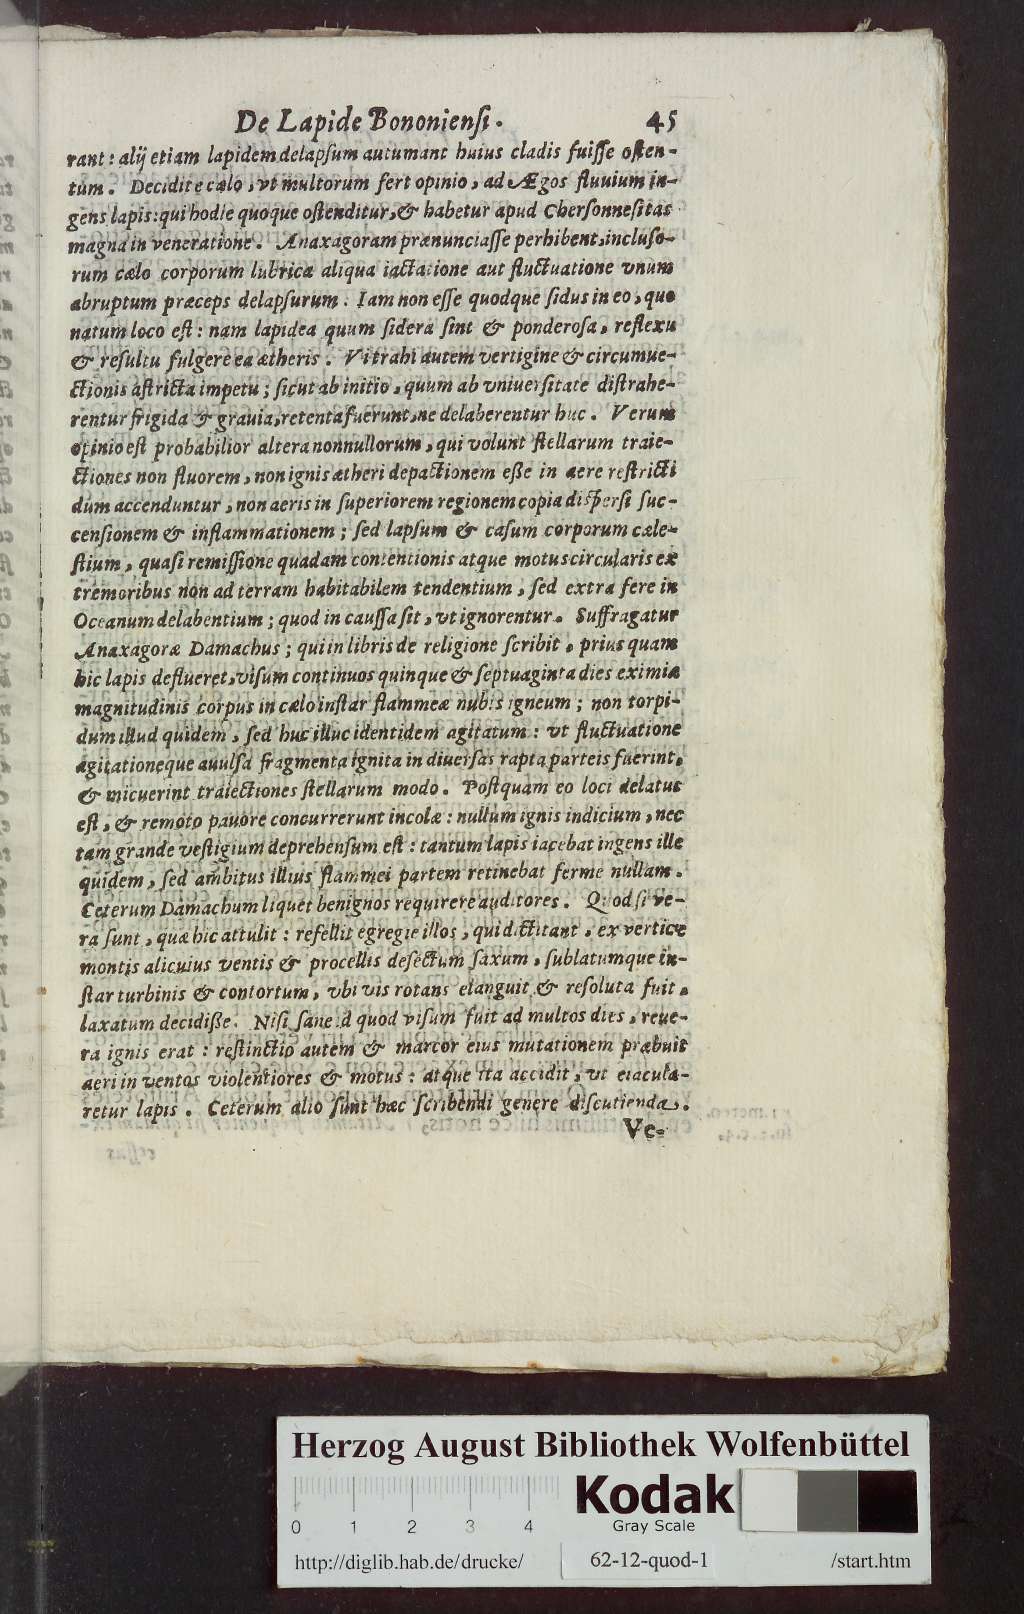 De Lapide Bononiensi. 45
rant: alij etiam lapidem delapsum autumant huius cladis fuisse osten-
tum. Decidit e cælo, vt multorum fert opinio, ad Ægos fluuium in-
gens lapis: qui hodie quoque ostenditur, & habetur apud Chersonnesitas
magna in veneratione. Anaxagoram prænunciasse perhibent, incluso-
rum cælo corporum lubrica aliqua iactatione aut fluctuatione vnum
abruptum præceps delapsurum. Iam non esse quodque sidus in eo, quo
natum loco est: nam lapidea quum sidera sint & ponderosa, reflexu
& resultu fulgere ea ætheris. Vi trahi autem vertigine & circumue-
ctionis astricta impetu; sicut ab initio, quum ab vniuersitate distrahe-
rentur frigida & grauia, retenta fuerunt, ne delaberentur huc. Verum
opinio est probabilior altera nonnullorum, qui volunt stellarum traie-
ctiones non fluorem, non ignis ætheri depactionem esse in aere restricti
dum accenduntur, non aeris in superiorem regionem copia dispersi suc-
censionem & inflammationem; sed lapsum & casum corporum cæle-
stium, quasi remissione quadam contentionis atque motus circularis ex
tremoribus non ad terram habitabilem tendentium, sed extra fere in
Oceanum delabentium; quod in caussa sit, vt ignorentur. Suffragatur
Anaxagoræ Damachus; qui in libris de religione scribit, prius quam
hic lapis deflueret, visum continuos quinque & septuaginta dies eximiæ
magnitudinis corpus in cælo instar flammeæ nubis igneum; non torpi-
dum illud quidem, sed huc illuc identidem agitatum: vt fluctuatione
agitationeque auulsa fragmenta ignita in diuersas rapta parteis fuerint,
& micuerint traiectiones stellarum modo. Postquam eo loci delatus
est, & remoto pauore concurrerunt incolæ: nullum ignis indicium, nec
tam grande vestigium deprehensum est: tantum lapis iacebat ingens ille
quidem, sed ambitus illius flammei partem retinebat ferme nullam.
Ceterum Damachum liquet benignos requirere auditores. Quod si ve-
ra sunt, quæ hic attulit: refellit egregie illos, qui dictitant, ex vertice
montis alicuius ventis & procellis desectum saxum, sublatumque in-
star turbinis & contortum, vbi vis rotans elanguit & resoluta fuit,
laxatum decidisse. Nisi sane id quod visum fuit ad multos dies, reue-
ra ignis erat: restinctio autem & marcor eius mutationem præbuit
aeri in ventos violentiores & motus: atque ita accidit, vt eiacula-
retur lapis. Ceterum alio sunt hæc scribendi genere discutienda.
Ve-
Herzog August Bibliothek Wolfenbüttel
0 1 2 3 4
Kodak
Gray Scale
http://diglib.hab.de/drucke/ 62-12-quod-1 /start.htm